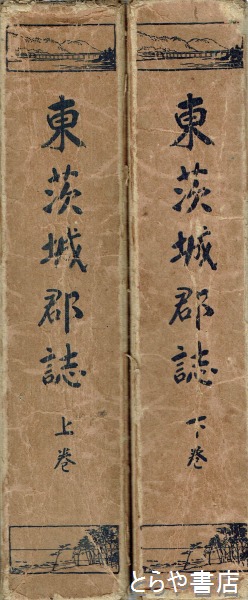 東茨城郡誌
上巻
東茨城郡誌
下巻
とらや書店